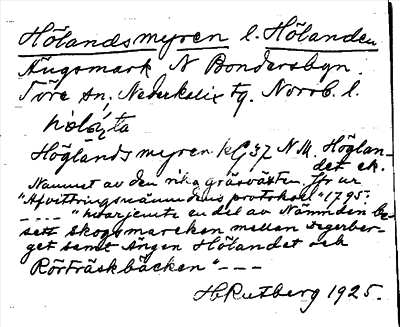 Hölandsmyren l. Hölanden
Ängsmark N Bondersbyn.
Töre sn, Nederkalix tg. Norrb. l.
hö̀lá̤ṇta
Höglandsmyren kG37 N.M. Höglan-
det ek.
Namnet av den rika gräsväxten. Jfr ur
"Afvittringsnämndens protokoll" 1795.
---- "hvarjemte en del av Nämnden be-
sett skogsmarcken mellan Segerber-
get samt Ängen Hölandet och
Rörträskbäcken" ---
H. Rutberg 1925.